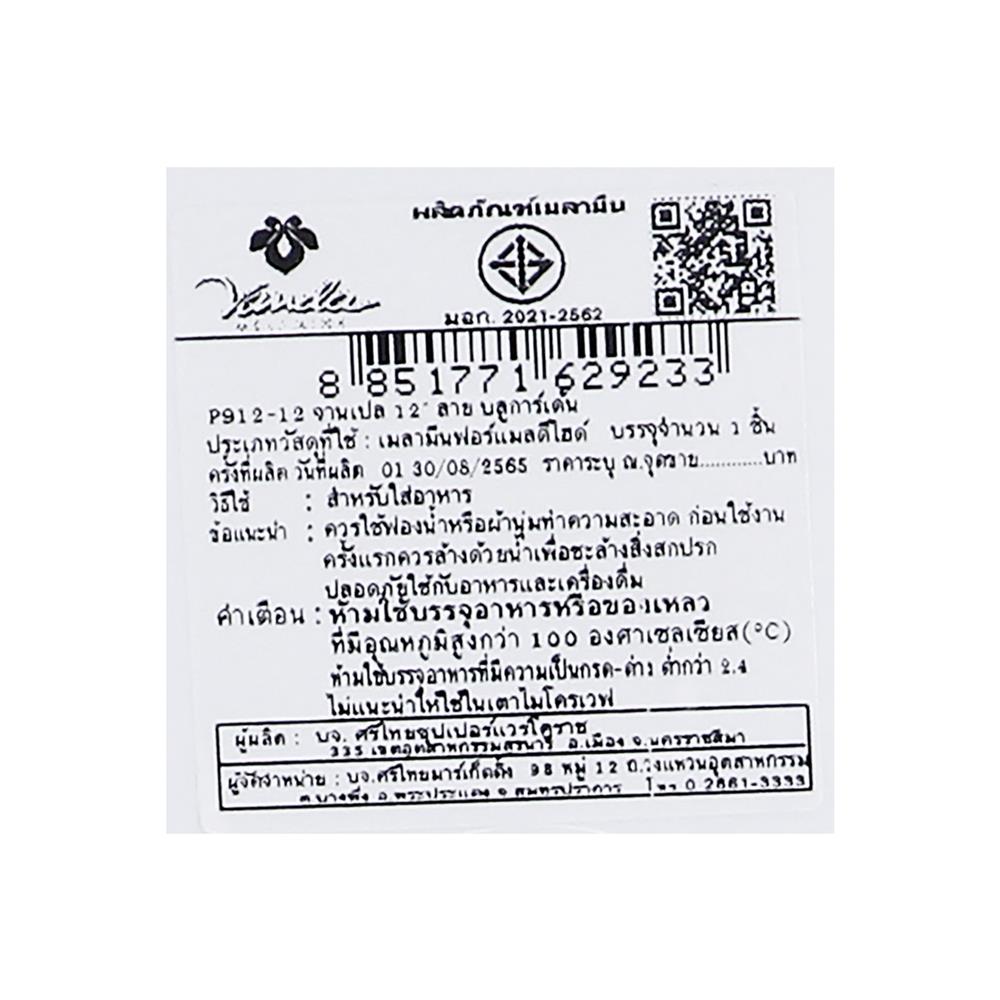 ผลิตภัณฑ์เมลามีน
Vanda
มอก. 2021-2562
8 851771 629233
P912-12 จานเปล 12" ลาย บลูการ์เด้น
ประเภทวัสดุที่ใช้ : เมลามีนฟอร์แมลดีไฮด์ บรรจุจำนวน 1 ชิ้น
ครั้งที่ผลิต วันที่ผลิต 01 30/08/2565 ราคาระบุ ณ.จุดขาย............บาท
วิธีใช้ : สำหรับใส่อาหาร
ข้อแนะนำ : ควรใช้ฟองน้ำหรือผ้านุ่มทำความสะอาด ก่อนใช้งาน
ครั้งแรกควรล้างด้วยน้ำเพื่อชะล้างสิ่งสกปรก
ปลอดภัยใช้กับอาหารและเครื่องดื่ม
คำเตือน : ห้ามใช้บรรจุอาหารหรือของเหลว
ที่มีอุณหภูมิสูงกว่า 100 องศาเซลเซียส(°C)
ห้ามใช้บรรจุอาหารที่มีความเป็นกรด-ด่าง ต่ำกว่า 2.4
ไม่แนะนำให้ใช้ในเตาไมโครเวฟ
ผู้ผลิต : บจ. ศรีไทยซุปเปอร์แวร์โคราช
335 เขตอุตสาหกรรมสุรนารี อ.เมือง จ.นครราชสีมา
ผู้จัดจำหน่าย : บจ.ศรีไทยมาร์เก็ตติ้ง 98 หมู่ 12 ถ.วงแหวนอุตสาหกรรม
ต.บางพึ่ง อ.พระประแดง จ.สมุทรปราการ โทร 0 2661-3333